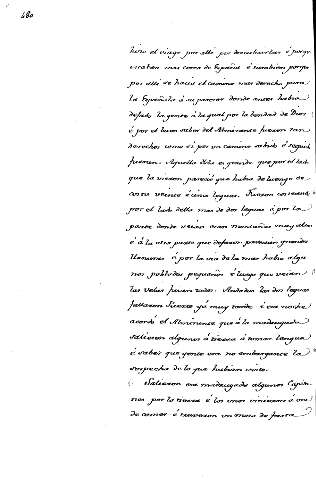 480
hizo el viage por allí por descubrirlas é porque
por allí se hacia el camino mas derecho para
la Española ó á su parecer donde antes habia
dejado la gente á la qual por la bondad de Dios
é por el buen saber del Almirante fueron tan
derechos como si por un camino sabido é seguido
fueran. Aquella Isla es grande que por el lado
que la vieron pareció que habia de luengo de
costa veinte é cinco leguas. Fueron costeando
por el lado della mas de dos leguas
parte donde veian unas montañas muy altas
á la otra parte que dejaron parecian grandes
llanuras é por la via de la mar habia algu
nos poblados pequeños é luego que veian
las velas huian todos. Andadas las dos leguas
fallaron Puerto yá muy tarde é esa noche
acordó el Almirante que á la madrugada
saliesen algunos á tierra á tomar lengua
é saber que gente era no embargante la
sospecha de la que habian visto.
Salieron esa madrugada algunos Capita
nes por la tierra é los unos vinieron á ora
de comer é trageron un mozo de fasta